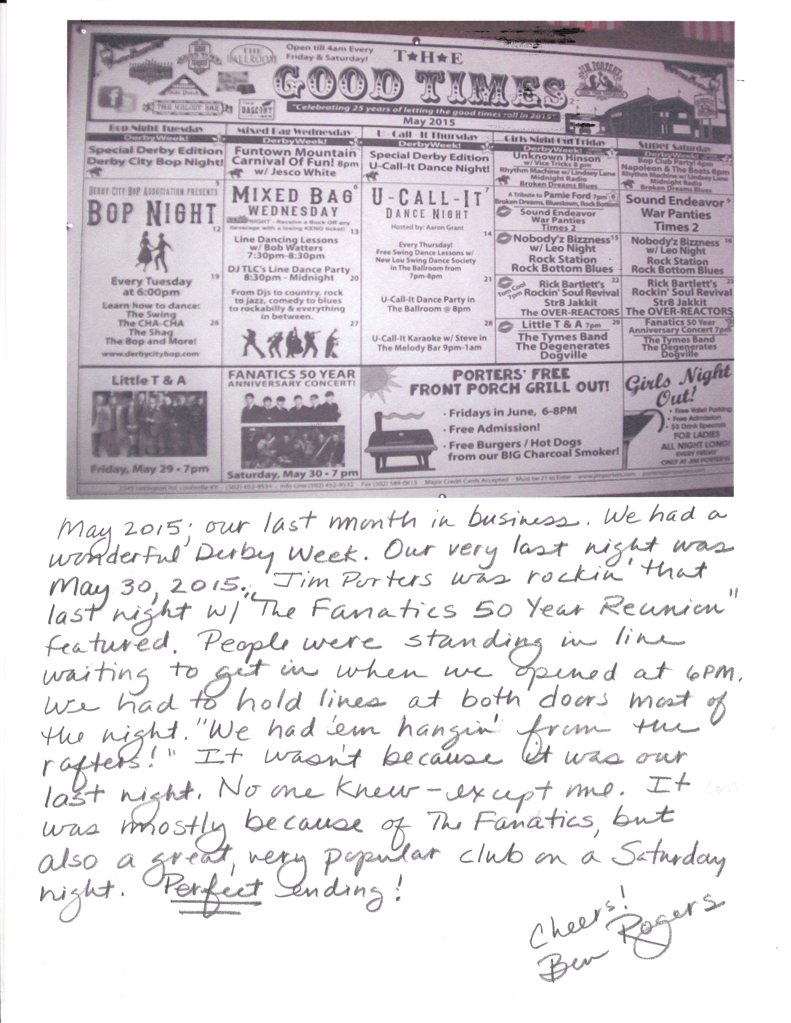 THE
BALLROOM
Open till 4am Every
Friday & Saturday!
T★H★E
GOOD TIMES
JIM PORTER'S
THE MELODY BAR
"Celebrating 25 years of letting the good times roll in 2015"
May 2015
Bop Night Tuesday
DerbyWeek!
Special Derby Edition
Derby City Bop Night!
DERBY CITY BOP ASSOCIATION PRESENTS
5
BOP NIGHT
12
Every Tuesday
19
at 6:00pm
Learn how to dance:
The Swing
The CHA-CHA
26
The Shag
The Bop and More!
www.derbycitybop.com
Mixed Bag Wednesday
DerbyWeek!
Funtown Mountain
Carnival Of Fun! 8pm
w/ Jesco White
6
MIXED BAG
WEDNESDAY
13
Line Dancing Lessons
w/ Bob Watters
7:30pm-8:30pm
DJ TLC's Line Dance Party
8:30pm - Midnight
20
From Djs to country, rock
to jazz, comedy to blues
to rockabilly & everything
in between.
27
U - Call-It Thursday
DerbyWeek!
Special Derby Edition
U-Call-It Dance Night!
7
U-CALL-IT
DANCE NIGHT
Hosted by: Aaron Grant
14
Every Thursday!
Free Swing Dance Lessons w/
New Lou Swing Dance Society
in The Ballroom from
7pm-8pm
21
U-Call-It Dance Party in
The Ballroom @ 8pm
28
U-Call-It Karaoke w/ Steve in
The Melody Bar 9pm-1am
Girls Night Out Friday
DerbyWeek!
Unknown Hinson
w/ Vice Tricks 8 pm
Rhythm Machine w/ Lindsey Lane
Midnight Radio
Broken Dreams Blues
A Tribute to Pamie Ford 7pm
Broken Dreams, Bluestown, Rock Bottom
Sound Endeavor
War Panties
Times 2
Nobody'z Bizzness
15
w/ Leo Night
Rock Station
Rock Bottom Blues
22
Tom Cool
7pm
Rick Bartlett's
Rockin' Soul Revival
Str8 Jakkit
The OVER-REACTORS
Little T & A 7pm
29
The Tymes Band
The Degenerates
Dogville
Super Saturday
DerbyWeek!
Bop Club Party! 6pm
Napoleon & The Boats 8pm
Rhythm Machine w/ Lindsey Lane
Midnight Radio
Broken Dreams Blues
9
Sound Endeavor
War Panties
Times 2
Nobody'z Bizzness
16
w/ Leo Night
Rock Station
Rock Bottom Blues
Rick Bartlett's
Rockin' Soul Revival
Str8 Jakkit
The OVER-REACTORS
Fanatics 50 Year
Anniversary Concert 7pm
The Tymes Band
The Degenerates
Dogville
Little T & A
Friday, May 29 • 7pm
FANATICS 50 YEAR
ANNIVERSARY CONCERT!
Saturday, May 30 • 7 pm
PORTERS' FREE
FRONT PORCH GRILL OUT!
• Fridays in June, 6-8PM
• Free Admission!
• Free Burgers / Hot Dogs
from our BIG Charcoal Smoker!
Girls Night
Out!
• Free Valet Parking
• Free Admission
• $3 Drink Specials
FOR LADIES
ALL NIGHT LONG!
EVERY FRIDAY
ONLY AT JIM PORTER'S
Major Credit Cards Accepted Must be 21 to Enter
May 2015; our last month in business. We had a
wonderful Derby Week. Our very last night was
May 30, 2015. Jim Porters was rockin' that
last night w/ "The Fanatics 50 Year Reunion"
featured. People were standing in line
waiting to get in when we opened at 6PM.
We had to hold lines at both doors most of
the night. "We had 'em hangin' from the
rafters!" It wasn't because it was our
last night. No one knew - except me. It
was mostly because of The Fanatics, but
also a great, very popular club on a Saturday
night. Perfect ending!
Cheers!
Ben Rogers